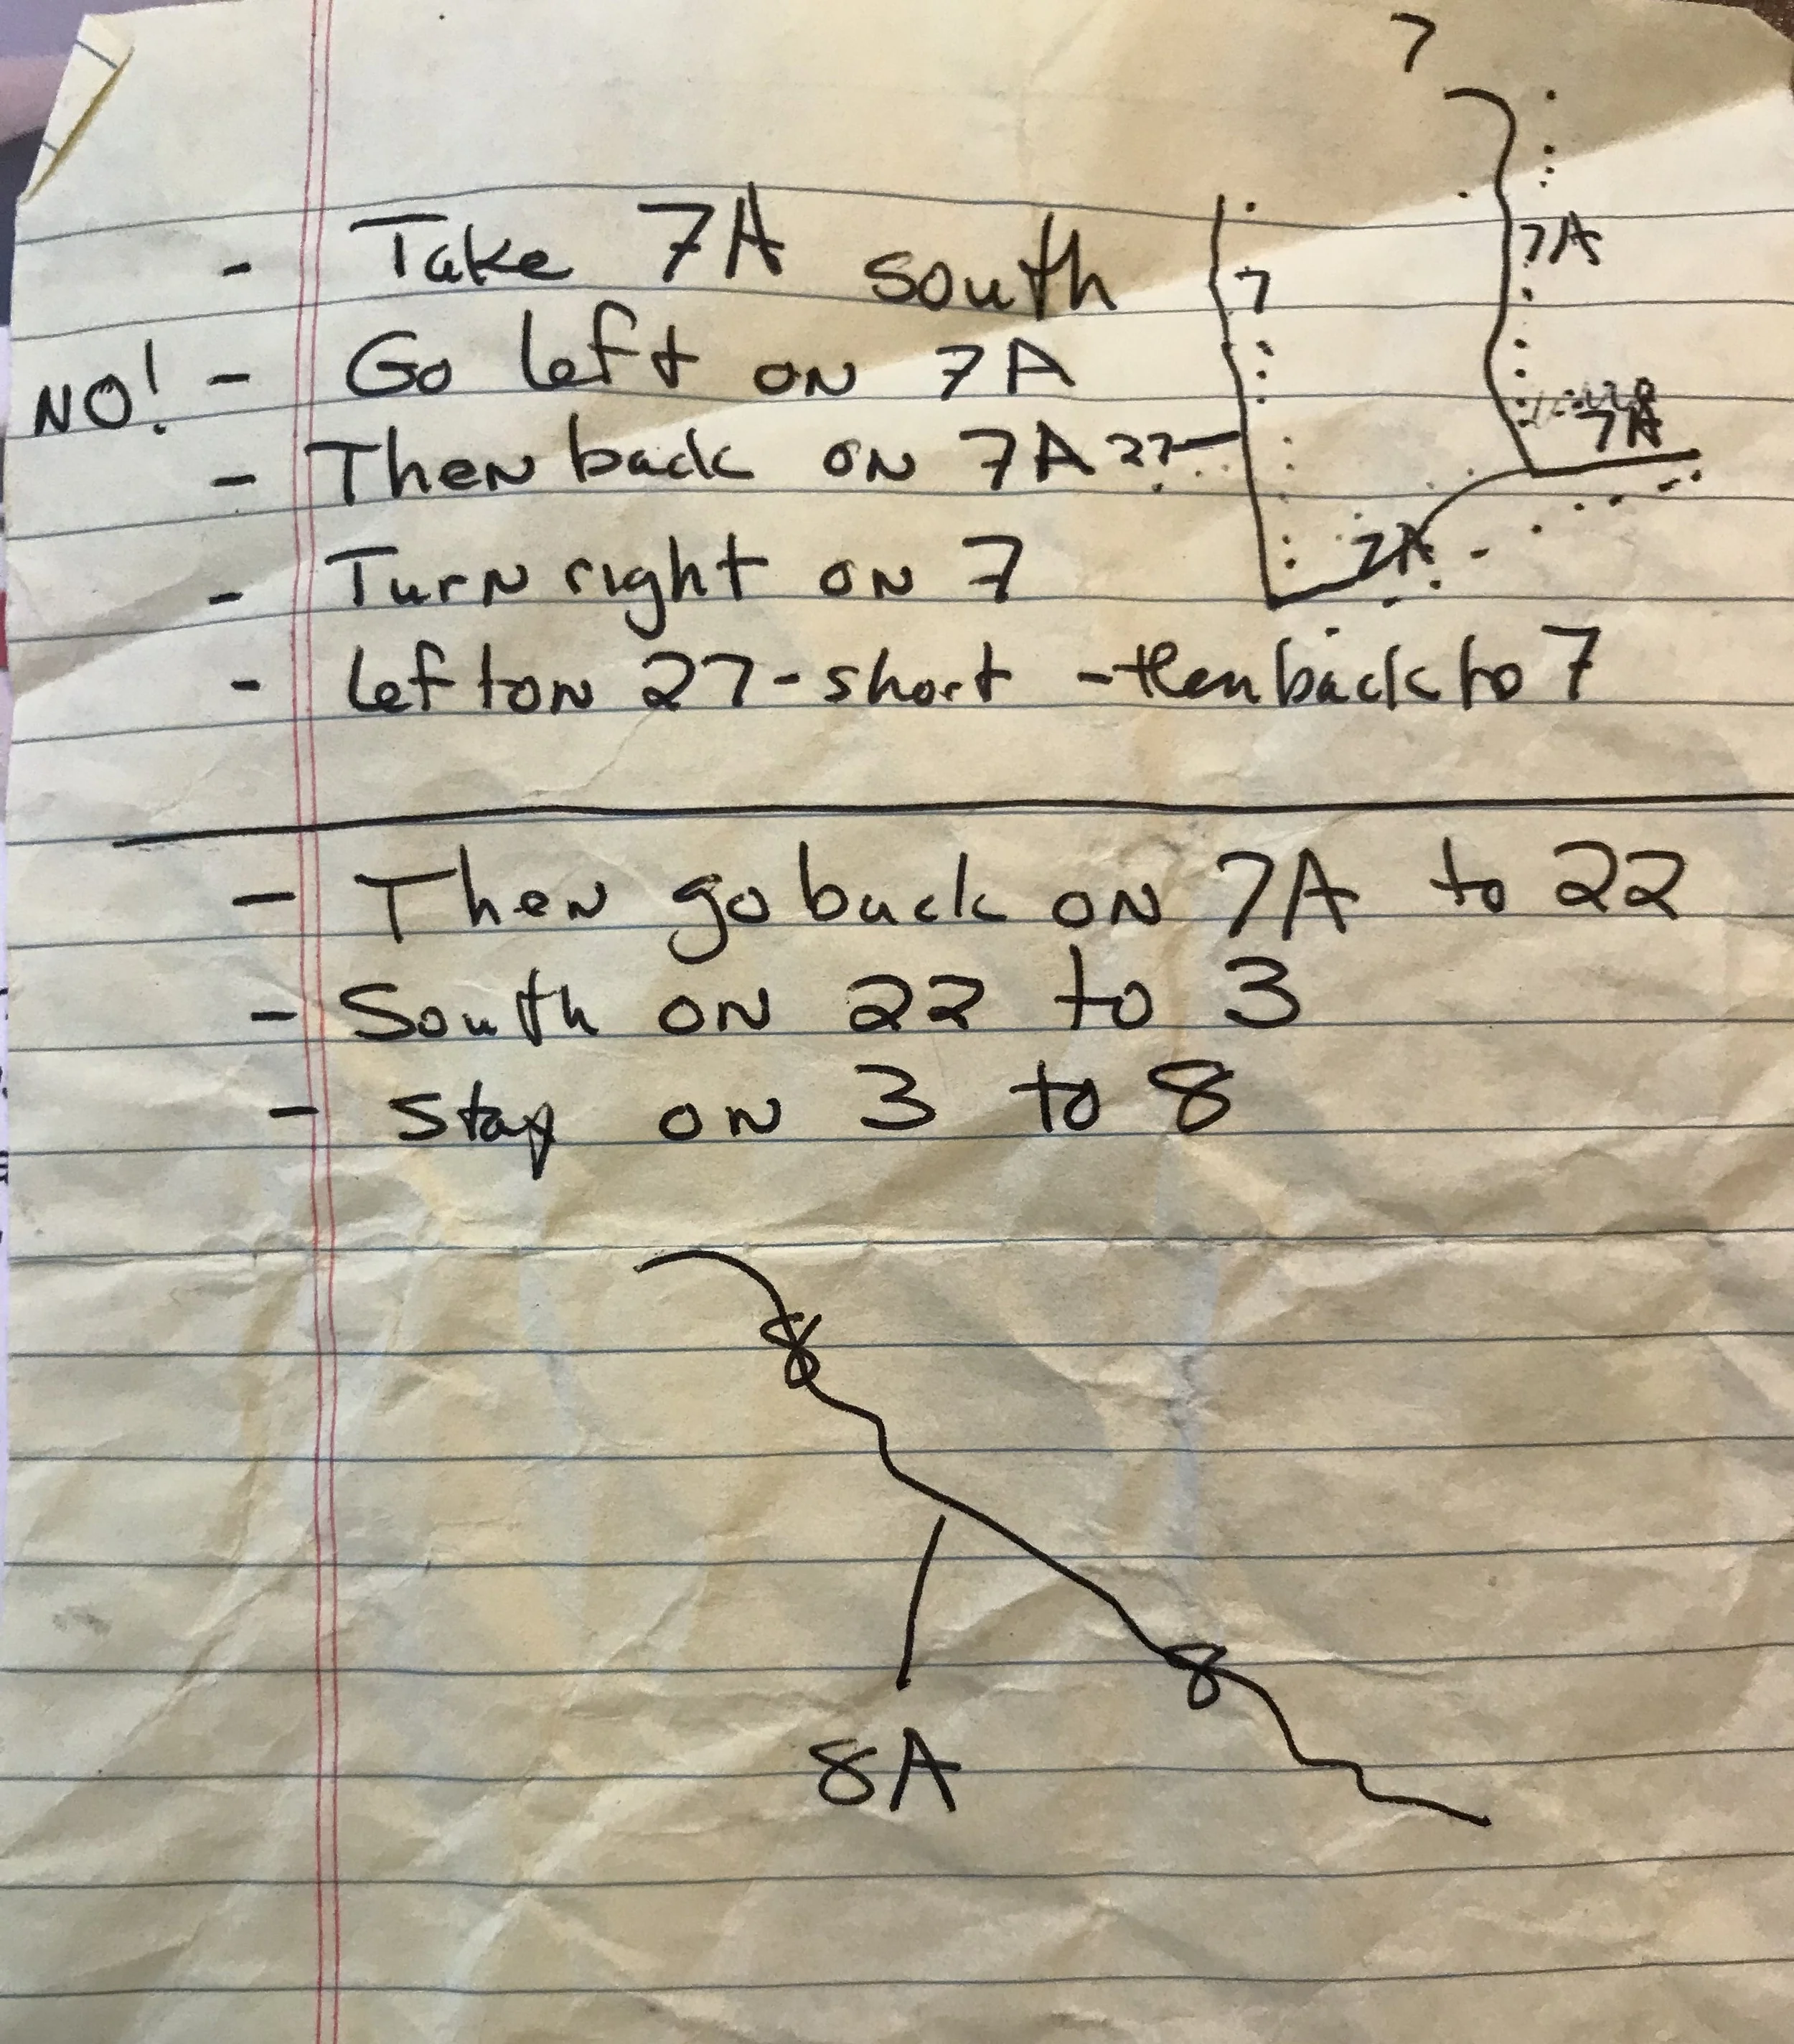 7
- Take 7A south
7
7A
NO! - Go left on 7A
7A
- Then back on 7A 27
- Turn right on 7
7A
- left on 27 - short - then back to 7
- Then go back on 7A to 22
- South on 22 to 3
- stay on 3 to 8
8
8
8A